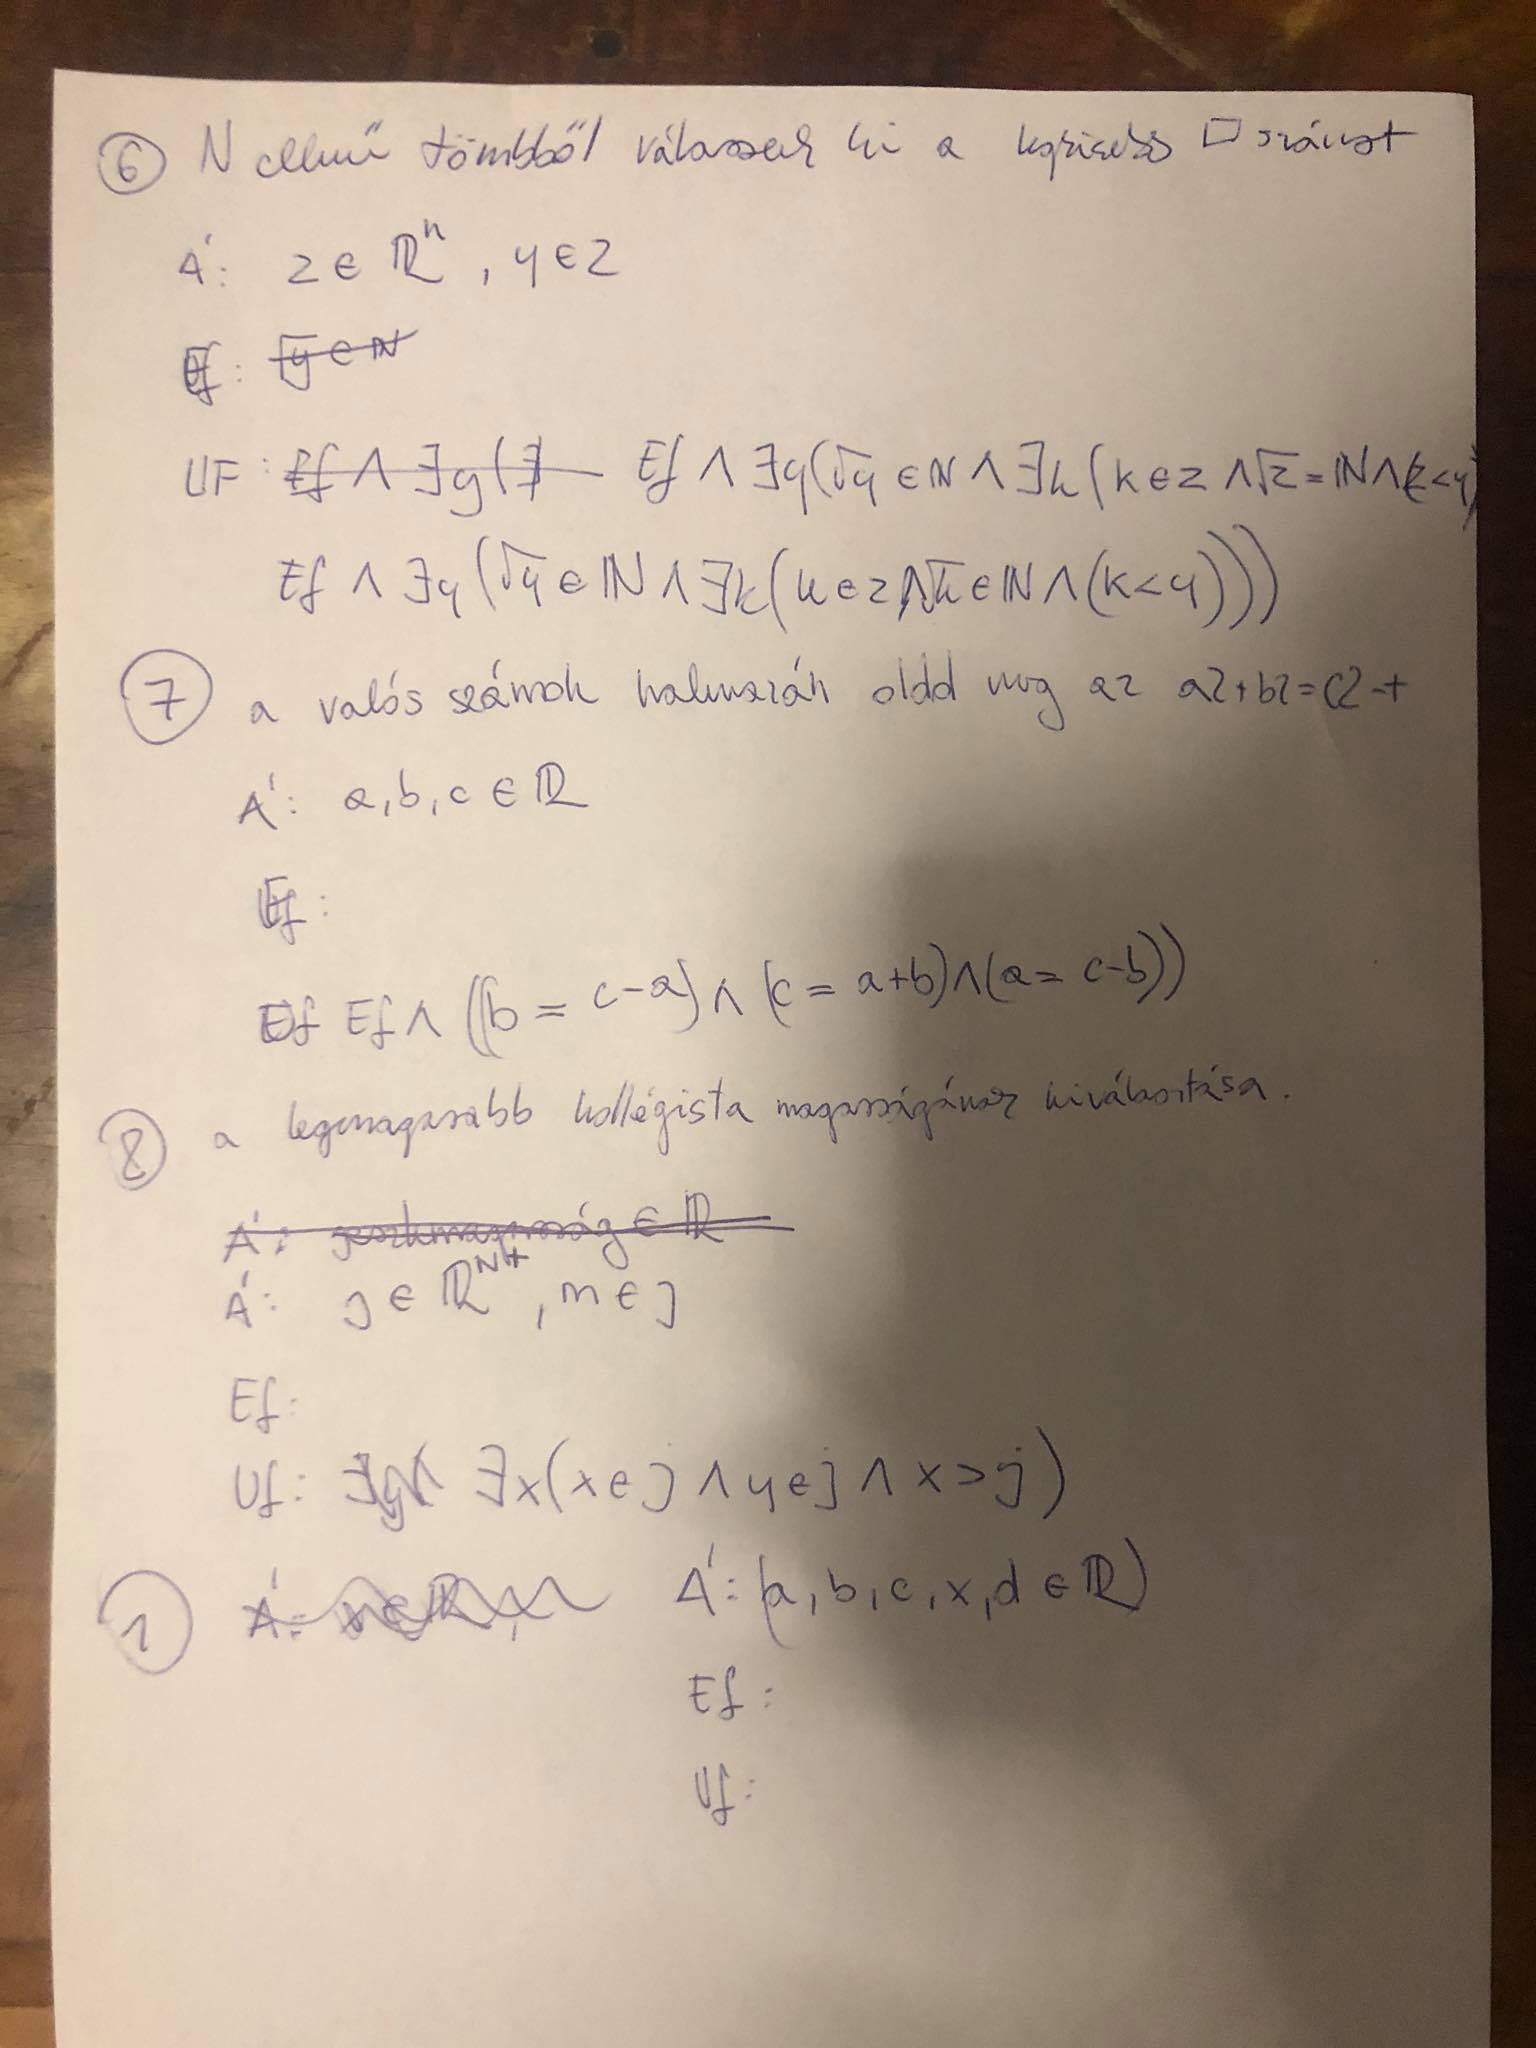 ⑥ N elemű tömbből válasszuk ki a legkisebb □ számot
Á: z ∈ ℝⁿ, y ∈ z
Ef: √y ∈ ℕ
UF: Ef ∧ ∃y(∃ Ef ∧ ∃y(√y ∈ ℕ ∧ ∃k(k ∈ z ∧ √z = ℕ ∧ k < y)
Ef ∧ ∃y(√y ∈ ℕ ∧ ∃k(k ∈ z ∧ √k ∈ ℕ ∧ (k < y)))
⑦ a valós számok halmazán oldd meg az a2+b2=c2-t
Á: a, b, c ∈ ℝ
Ef:
Ef ∧ ((b = c-a) ∧ (c = a+b) ∧ (a = c-b))
⑧ a legmagasabb kollégista magasságának kiválasztása.
Á: ∈ ℝ
Á: j ∈ ℝᴺ⁺, m ∈ j
Ef:
Uf: ∃x(x ∈ j ∧ y ∈ j ∧ x > j)
① Á: x ∈ ℝ, Á: (a, b, c, x, d ∈ ℝ)
Ef:
Uf: